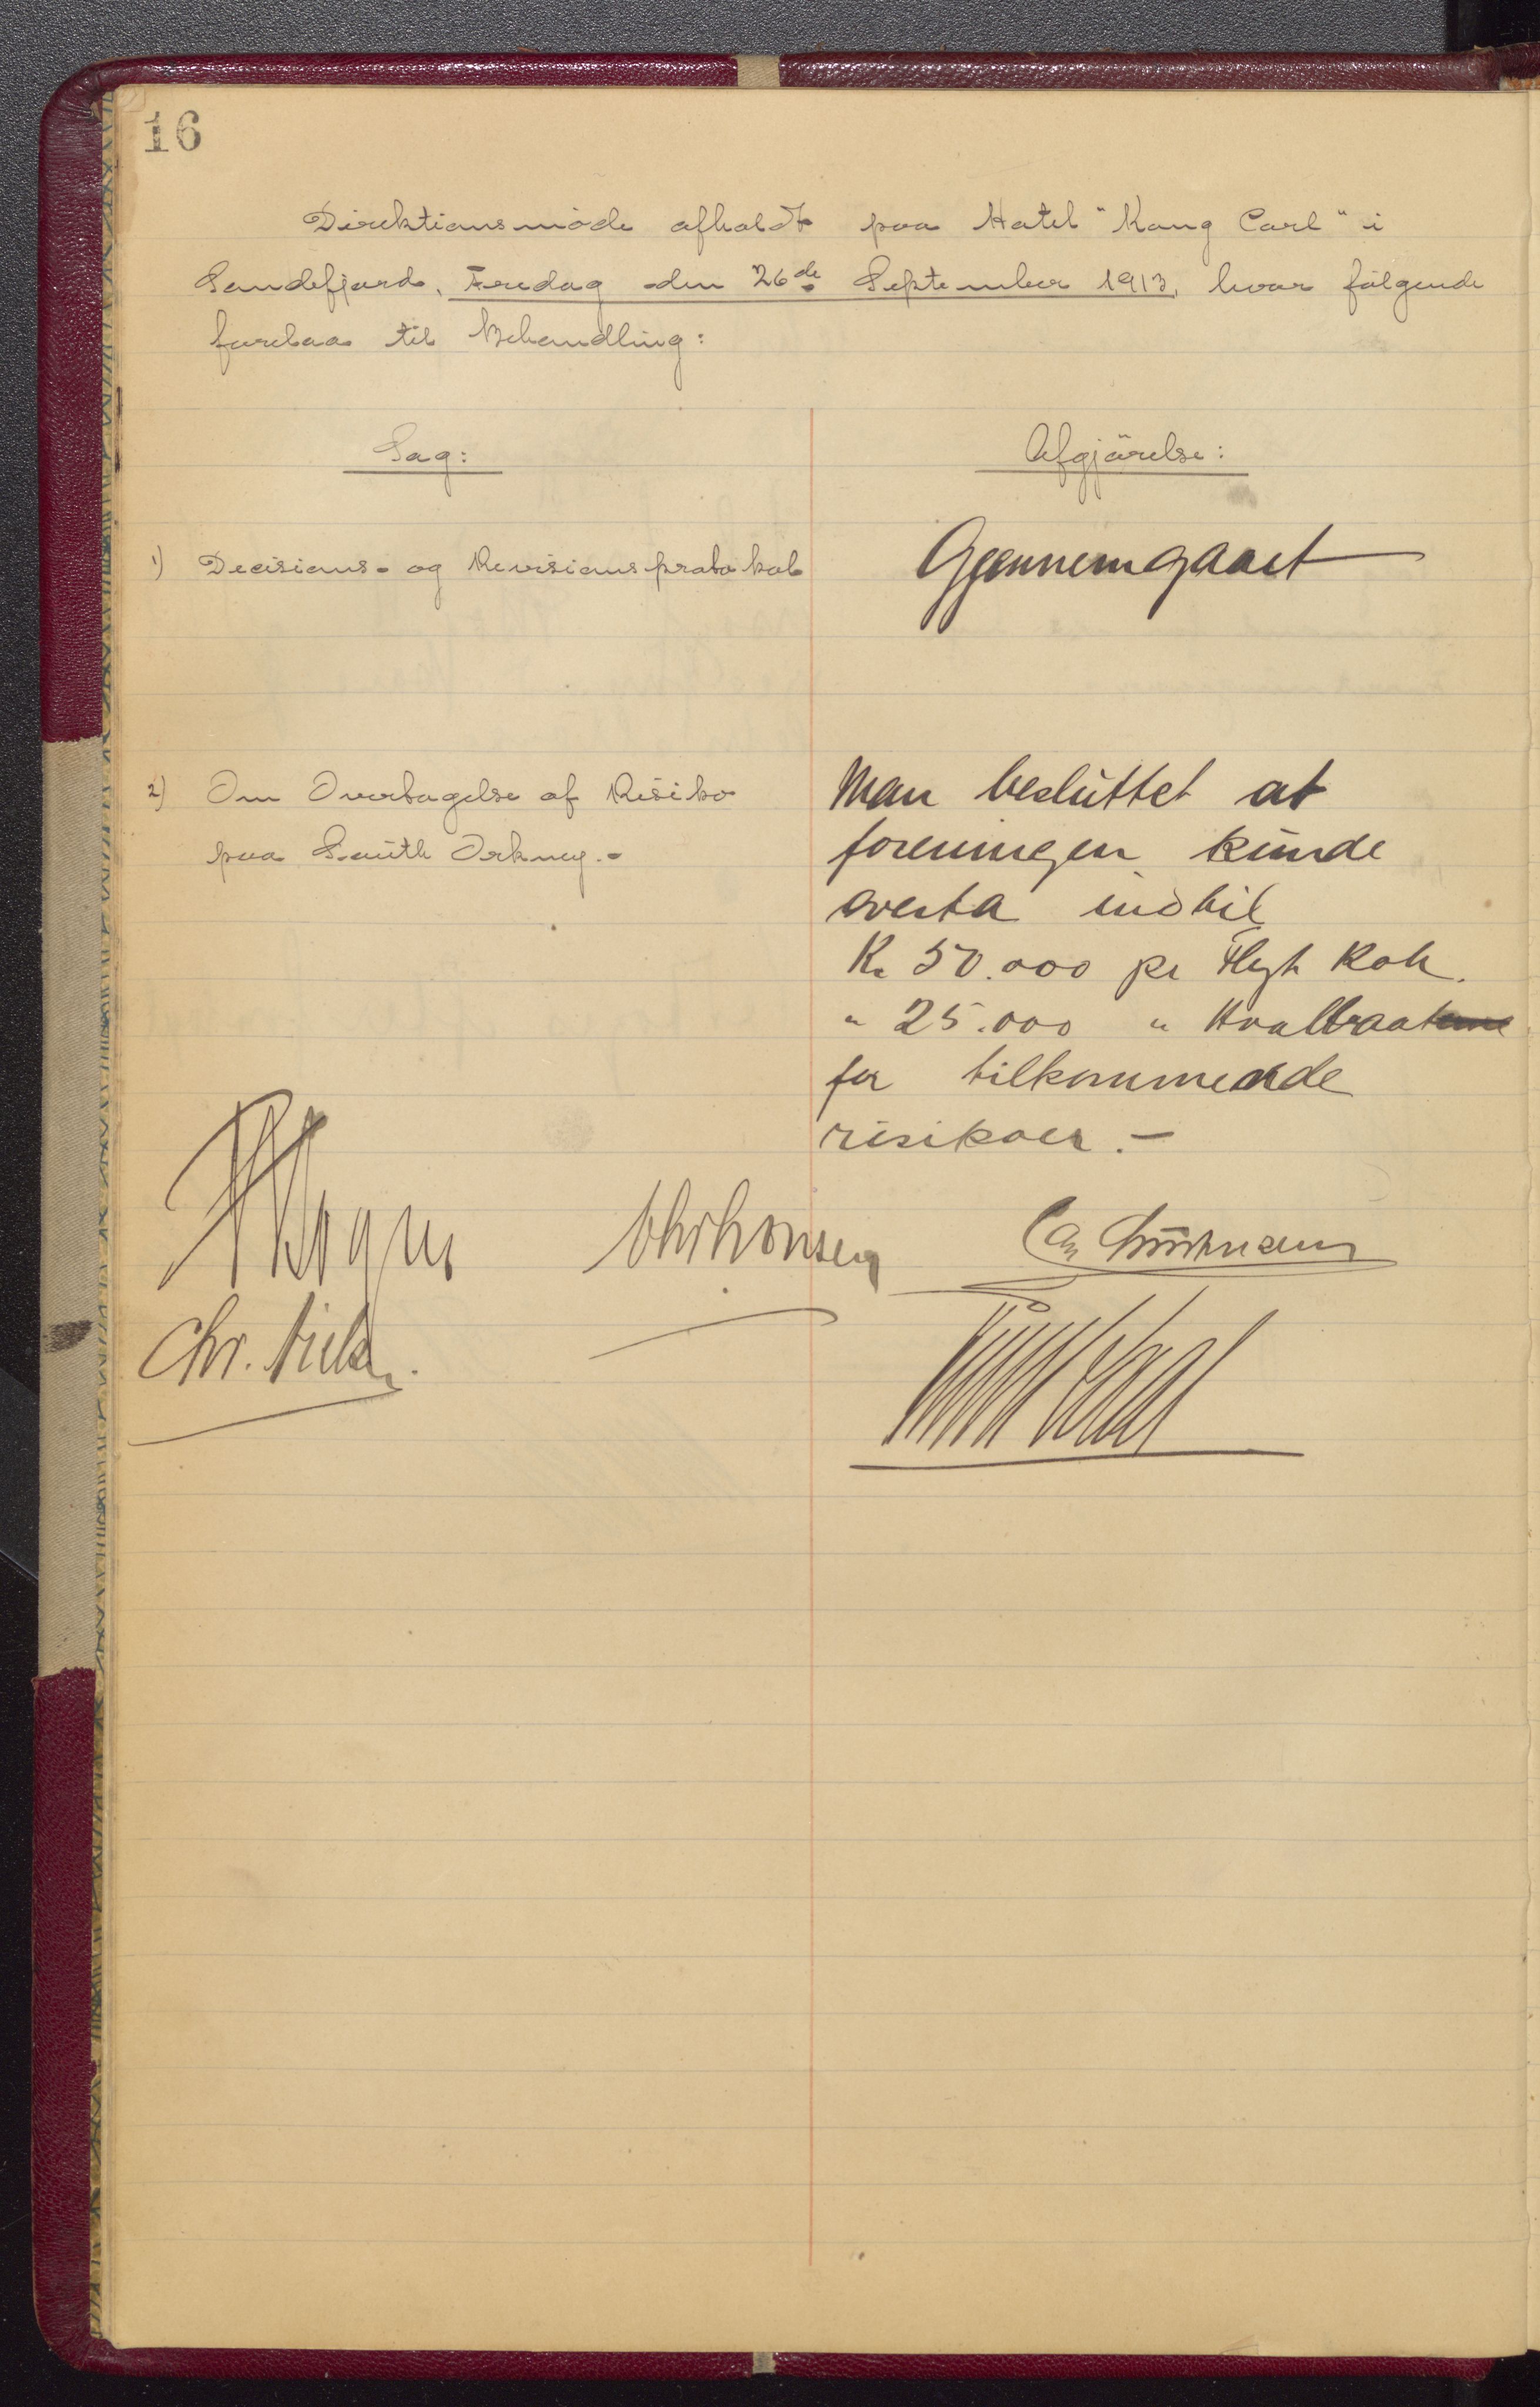 16
Direktionsmöde afholdt paa Hotel "Kong Carl" i
Sandefjord, Fredag den 26de September 1913, hvor fölgende
forelaa til Behandling:
Sag:
Afgjörelse:
1) Decisions- og Revisionsprotokol
Gjennemgaaet
2) Om Overtagelse af Risiko
paa South Orkney.-
Man besluttet at
foreningen kunde
overta indtil
Kr 50.000 pr Flyt Kok.
" 25.000 " Hvalbaat
for tilkommende
risikoer.-
Chr. Nielsen